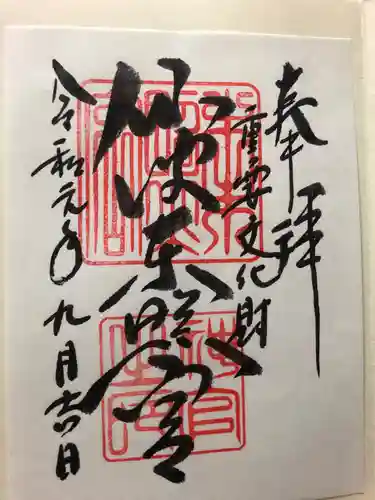 奉拝
重要文化財
仙波東照宮
令和元年九月十六日